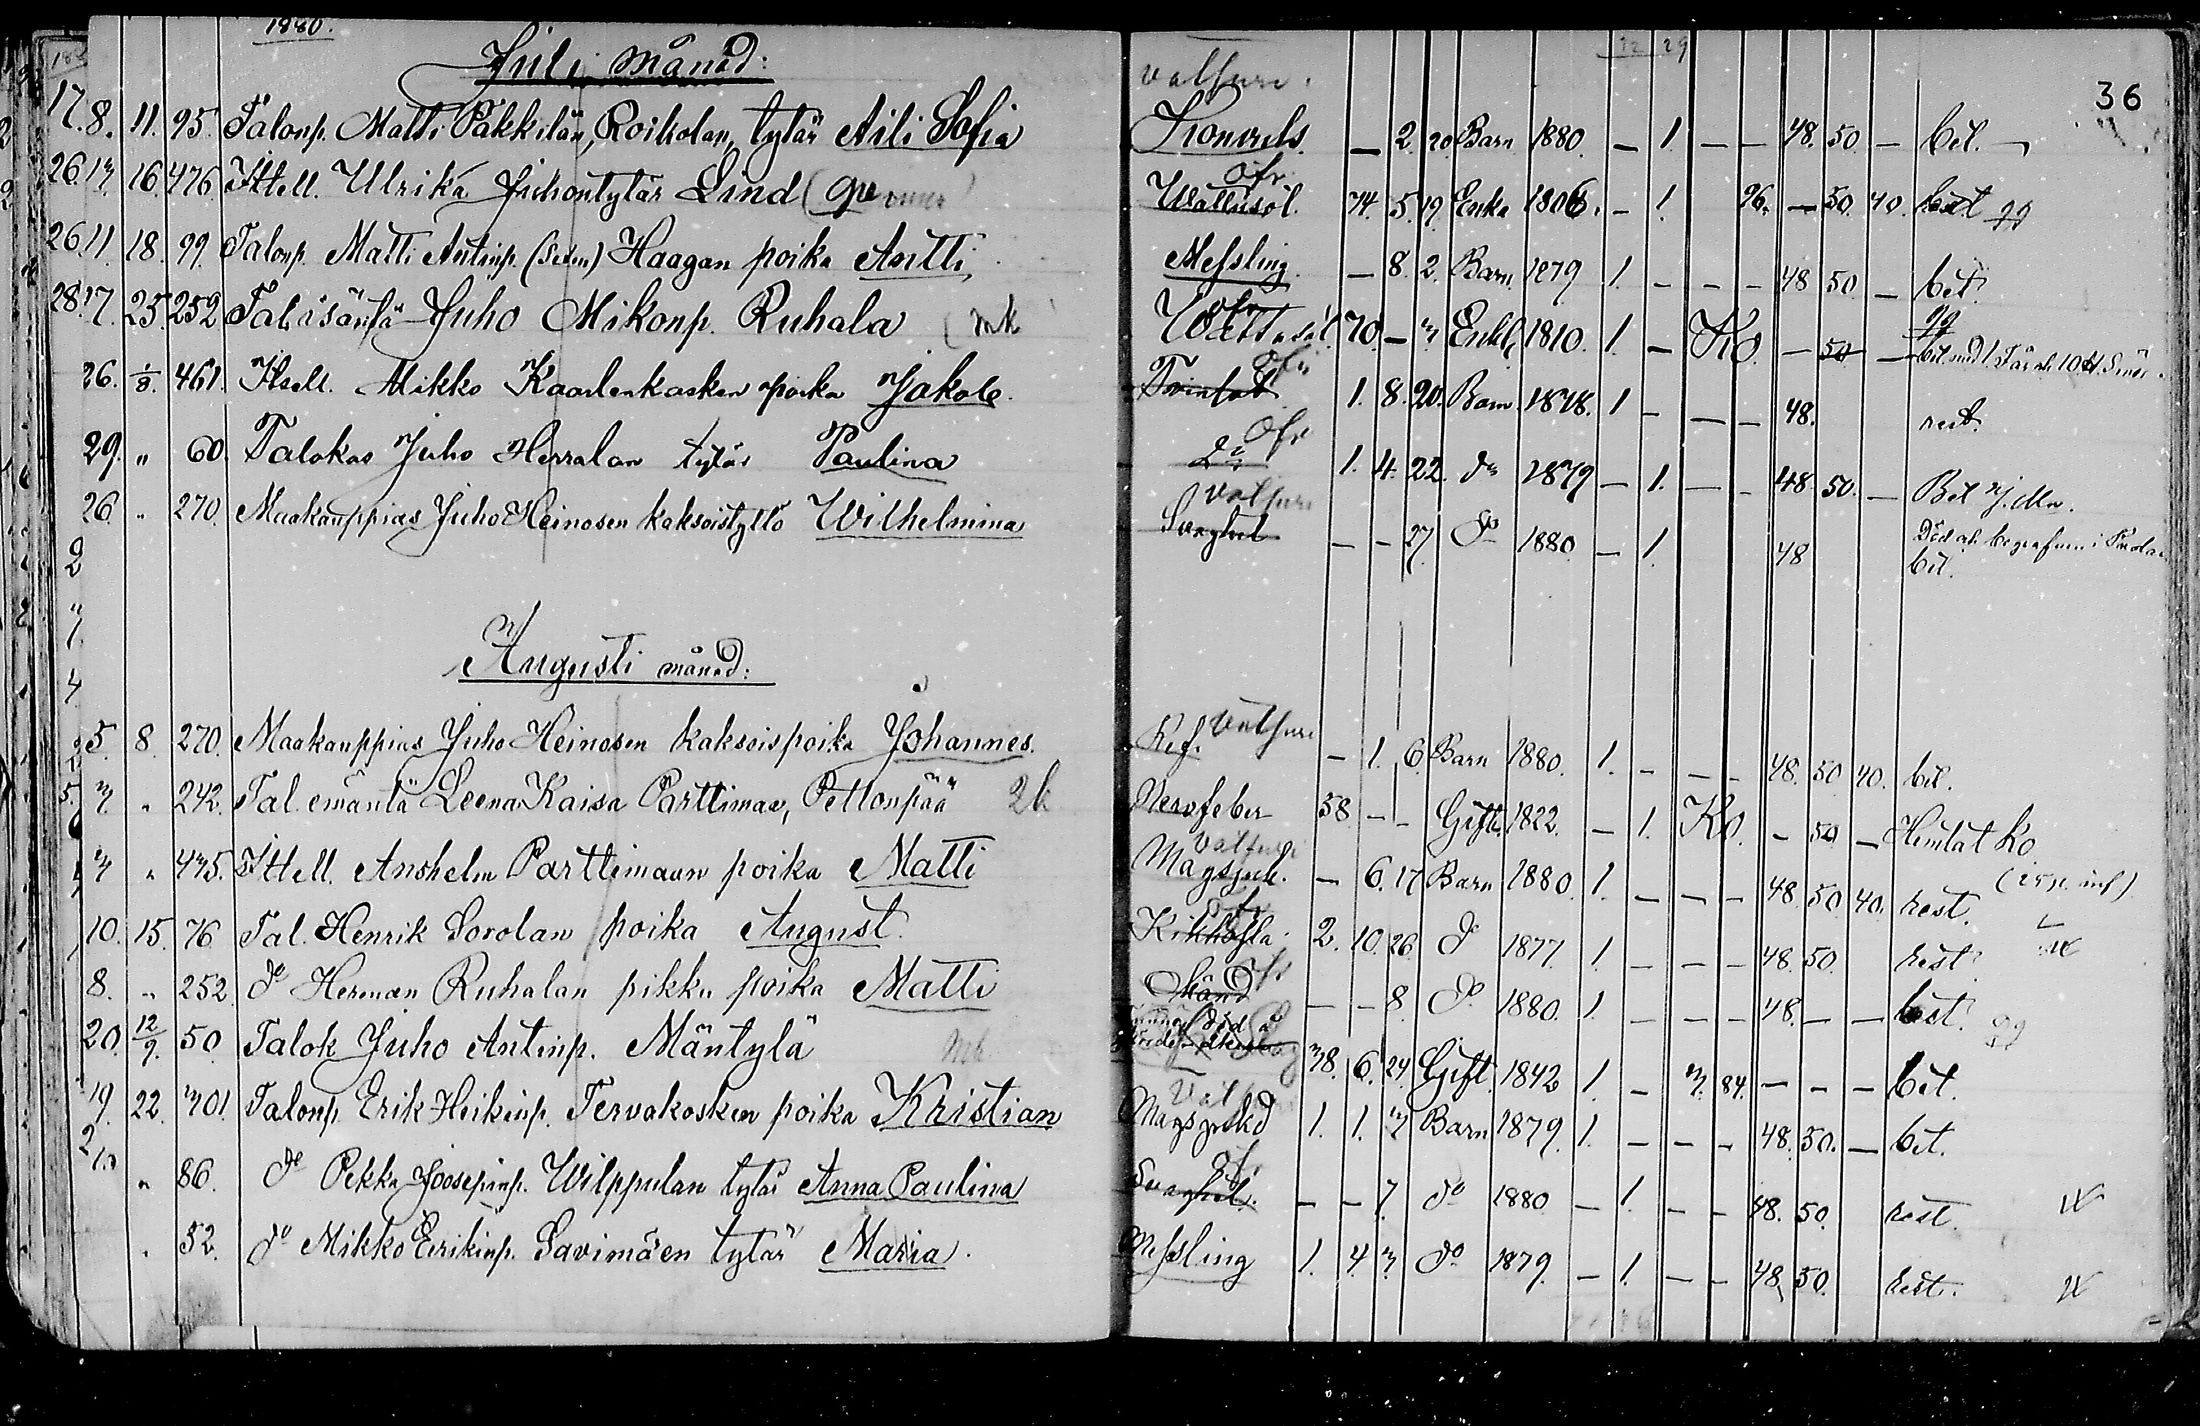 1880.
Juli månad:
17. 8. 11. 95. Talonp. Matti Pakkilan, Roiholan, tytär Aili Sofia
26. 17. 16. 476 Ittell. Ulrika Juhontytär Lind
26. 11. 18. 99. Talonp. Matti Antinp. Haagan poika Antti
28. 17. 25. 252 Tal isäntä Juho Mikonp. Ruhala (mk
26. 1/8. 461. Itsell. Mikko Kaarlenkasken poika Jakob.
29. " 60. Talokas Juho Herralan tytär Paulina
26 " 270. Maakauppias Juho Heinosen kaksoistyttö Wilhelmina
Augusti månad:
5. 8. 270. Maakauppias Juho Heinosen kaksoispoika Johannes.
7. " 242. Tal. emäntä Leena Kaisa Parttimaa, Peltonpää 2k
7 " 475. Ittell. Anshelm Parttimaan poika Matti
10. 15. 76 Tal. Henrik Sorolan poika August.
8. " 252 do Herman Ruhalan pikku poika Matti
20. 12/9. 50 Talok Juho Antinp. Mäntylä mk
19. 22. 701. Talonp. Erik Heikinp. Tervakosken poika Kristian
" 86. do Pekka Joosepinp. Wilppulan tytär Anna Paulina
" 52. do Mikko Eerikinp. Savimäen tytär Maria.
36
— 2. 20 Barn 1880. — 1. — — 48. 50. — bet.
Wattusot. 74. 5. 19. Enka 1806. — 1. 96. — 50. 40. bet
Messling. — 8. 2. Barn. 1879 1. — — — 48 50. — bet.
Wattusot. 70. — 7. Enkl. 1810. 1. — Ko. — 50 —
1. 8. 20. Barn. 1878. 1 — — — 48. rest.
do 1. 4. 22. do 1879 — 1. — — 48. 50. — Bet
Svaghet — — 27. do 1880. — 1. 48 Död och begrafven i
bet.
— 1. 6. Barn 1880. 1. — — — 48. 50 40. bet.
Nervfeber 58 — — Gift. 1822. — 1. Ko. — 50 — Hemtat Ko
Magsjuk. — 6. 17 Barn 1880. 1. — — — 48. 50. 40. rest.
Kikhosta. 2. 10. 26. do 1877. 1. — — — 48. 50. rest.
— — 8. do 1880. 1. — — — 48. — — bet.
38. 6. 24. Gift. 1842 1. — 7. 84. — — — bet.
1. 1. 7 Barn 1879. 1. — — — 48. 50. — bet.
Svaghet. — — 7. do 1880 — 1. — — 48. 50. rest.
Messling 1. 4. 7. do 1879. — 1. — — 48. 50. rest.